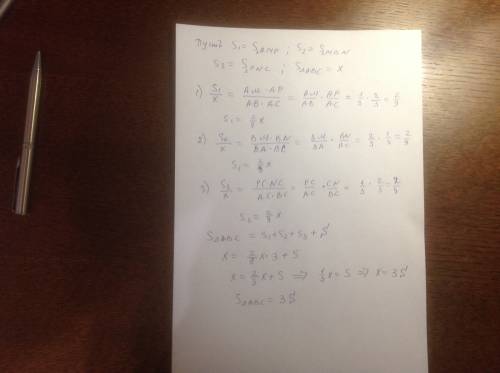 Пусть S₁ = S△AMP ; S₂ = S△MBN
S₃ = S△PNC ; S△ABC = x
1) S₁/x = AM·AP/AB·AC = AM/AB · AP/AC = 1/3 · 2/3 = 2/9
S₁ = 2/9 x
2) S₂/x = BM·BN/BA·BP = BM/BA · BN/BC = 2/3 · 1/3 = 2/9
S₂ = 2/9 x
3) S₃/x = PC·NC/AC·BC = PC/AC · CN/BC = 1/3 · 2/3 = 2/9
S₃ = 2/9 x
S△ABC = S₁+S₂+S₃+S
x = 2/9 x·3 + S
x = 2/3 x + S ⇒ 1/3 x = S ⇒ x = 3S
S△ABC = 3S